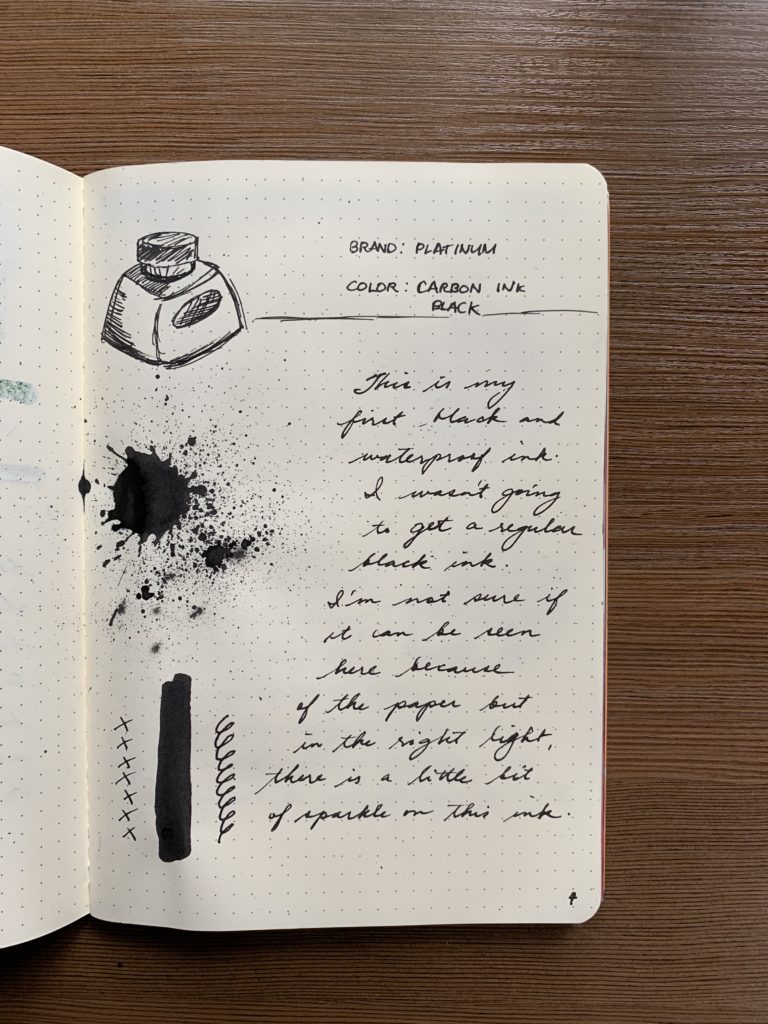 BRAND: PLATINUM
COLOR: CARBON INK
BLACK
This is my
first black and
waterproof ink.
I wasn't going
to get a regular
black ink.
I'm not sure if
it can be seen
here because
of the paper but
in the right light,
there is a little bit
of sparkle on this ink.
4